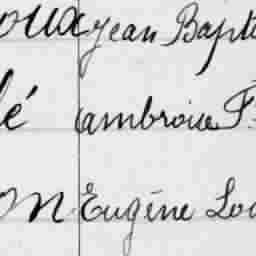 oux Jean Bapt
é Ambroise F.
on Eugéne Lou